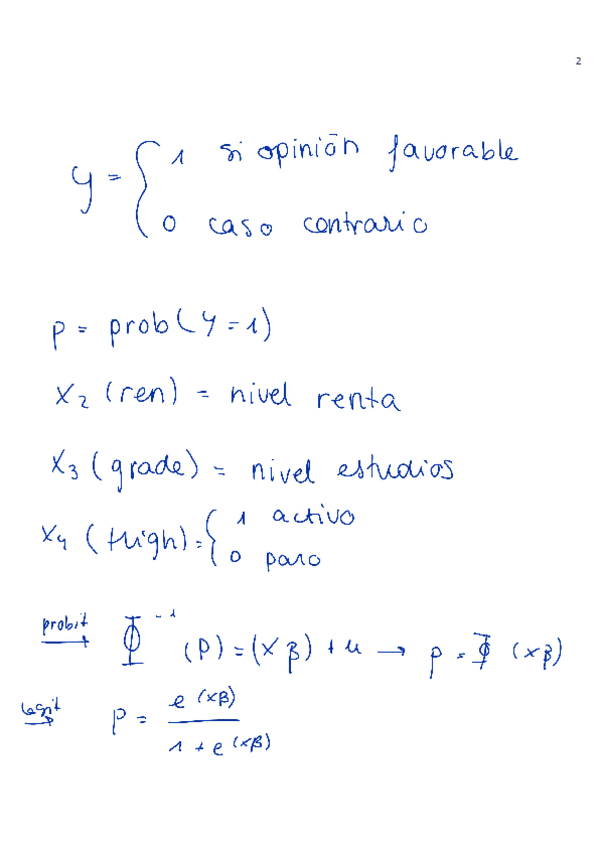 2
y = { 1 si opinión favorable
0 caso contrario
p = prob(y = 1)
X2 (ren) = nivel renta
X3 (grade) = nivel estudios
X4 (thigh) = { 1 activo
0 paro
probit Φ^-1 (p) = (Xβ) + u → p = Φ (xβ)
logit p = e^(xβ) / 1 + e^(xβ)